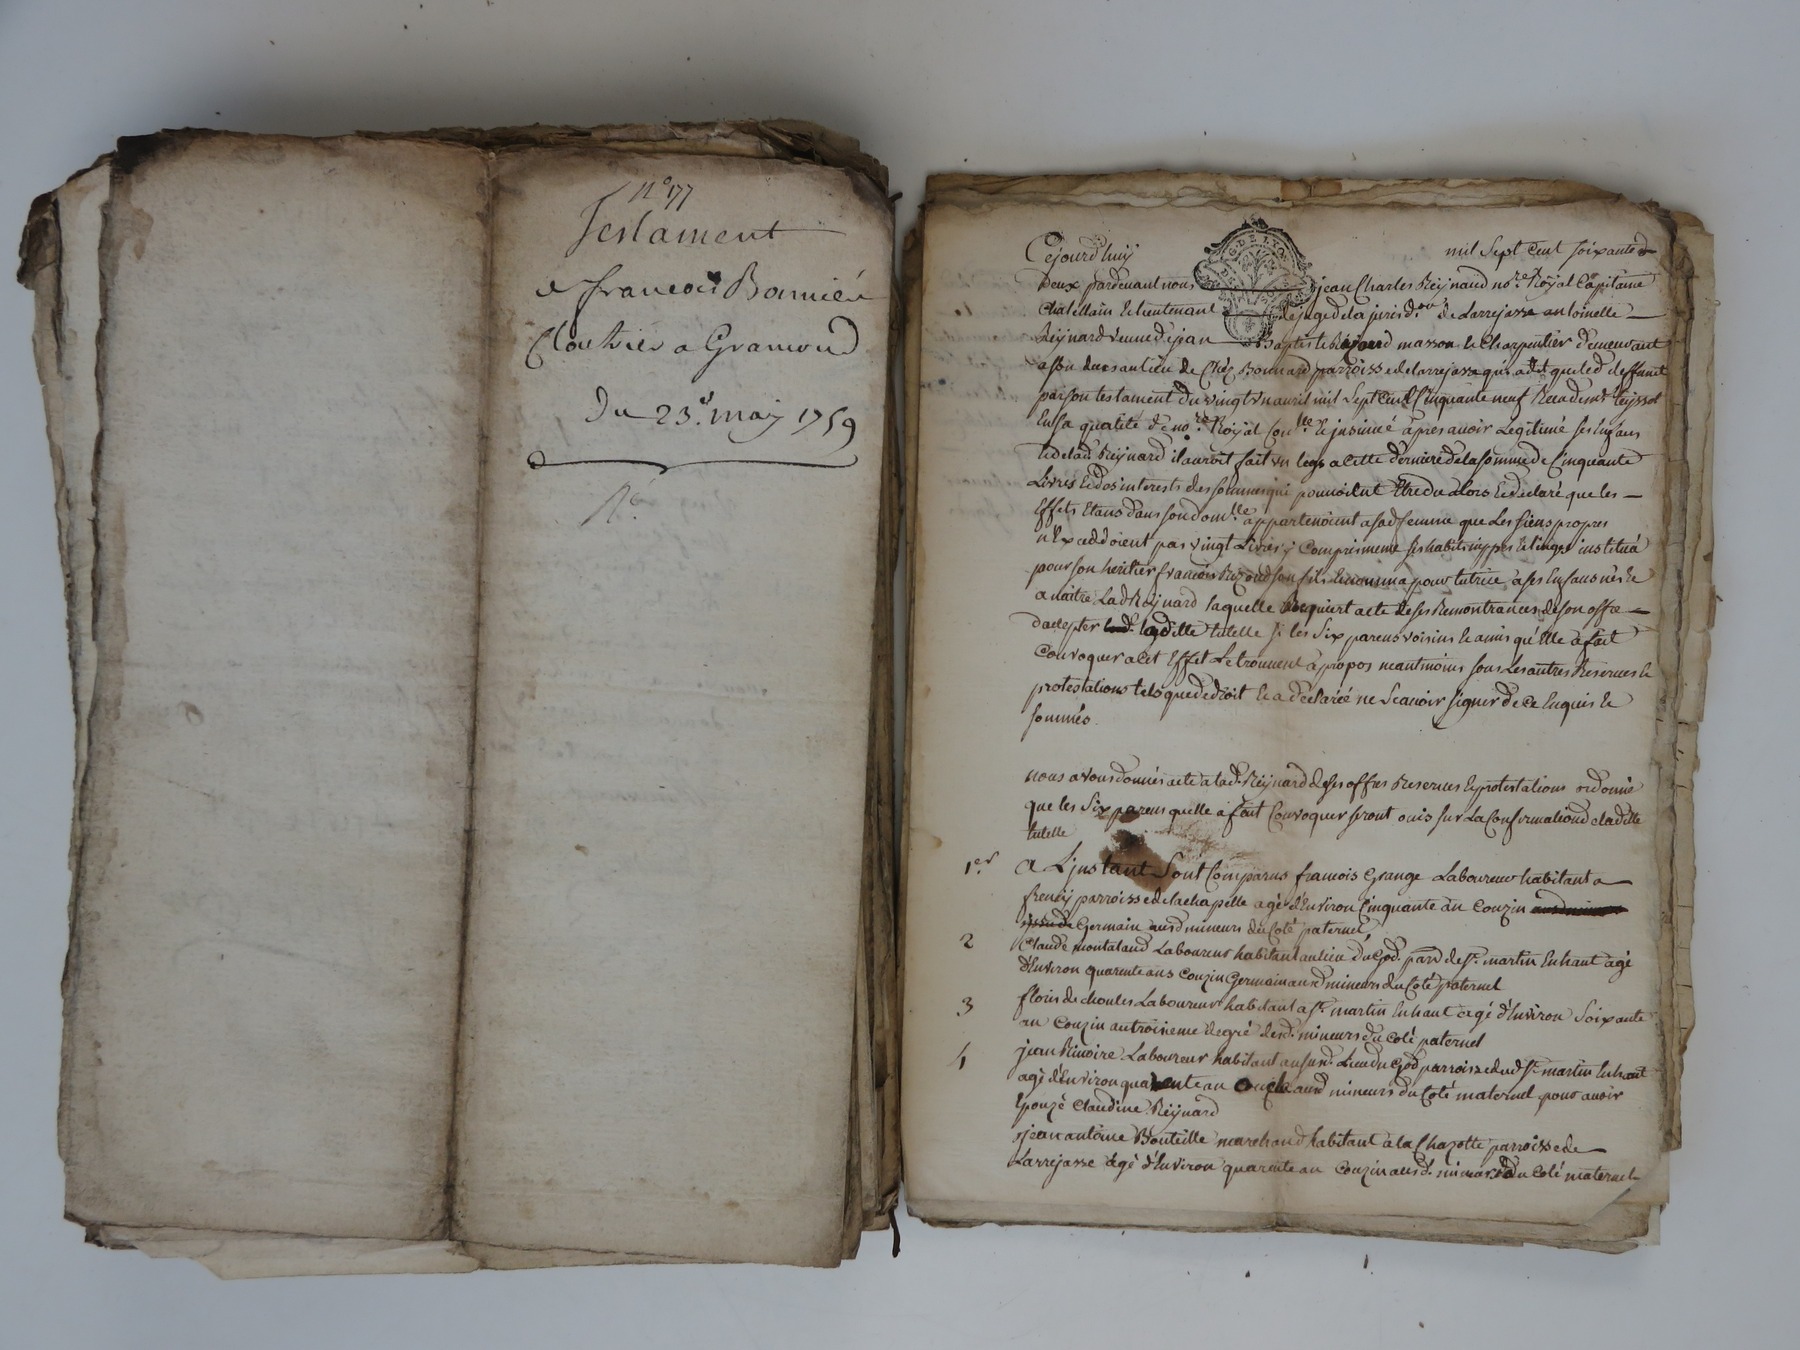 N° 177
Testament
de francois Bonnier
Cloutrier a Gramond
Du 23e. may 1759
Ne.
Cejourd'huy mil Sept Cent soixante &
Deux pardevant nous jean Charles Reynaud nore. Royal Capitaine
Chatellain & lieutenant de juge de la jurisdon. de Larrejasse antoinette
Reynard veuve de jean Baptiste masson & Charpentier demeurant
a son deces au lieu de Chez Bonnard parroisse de larrejasse qui a dit que led. deffunt
par son testament du vingt un avril mil Sept Cent Cinquante neuf Receu de me. Teyssot
En sa qualité de nore. Royal & insinué apres avoir Legitimé ses Enfans
& de lad. Reynard il auroit fait un legs a cette derniere de la somme de Cinquante
Livres & des interests des sommes qui pouvoient Etre du alors & declaré que les
Effets Etans dans son domlle. appartenoient a sad. femme que Les siens propres
n'Exceddoient pas vingt Livres y Compris meme ses habits nippes & linges institua
pour son heritier francois son fils & nomma pour tutrice a ses Enfans nés &
a naitre Lad. Reynard laquelle Requiert acte de ses Remontrances de son offre
d'accepter ladite tutelle si les Six parens voisins & amis qu'Elle a fait
Convoquer a cet Effet Le trouvent a propos neantmoins sous Les autres Reserves &
protestations telsque de droit & a declarée ne Scavoir signer de ce Enquis &
sommés.
nous avons donnés acte a lad. Reynard de ses offres Reserves & protestations ordonné
que les Six parens quelle a fait Convoquer seront ouis sur La Confirmation de ladite
tutelle
1er. A L'instant Sont Comparus francois Grange Laboureur habitant a
parroisse de lachapelle agé d'Environ Cinquante an Couzin
Germain ausd. mineurs du Coté paternel
2 Claude montaland Laboureur habitant au lieu du God. parr. de St. martin En haut agé
d'Environ quarente ans Couzin Germain ausd. mineurs du Coté paternel
3 floris de choules Laboureur habitant a St. martin En haut agé d'Environ Soixante
an Couzin au troisieme degré desd. mineurs du Coté paternel
4 jean Rivoire Laboureur habitant au susd. Lieu du God parroisse dud. St. martin En haut
agé d'Environ quarente an oncle ausd. mineurs du Coté maternel pour avoir
Epouzé Claudine Reynard
jean antoine Bouteille marchand habitant a la Chazotte parroisse de
Larrejasse agé d'Environ quarente an Couzin ausd. mineurs du Coté maternel